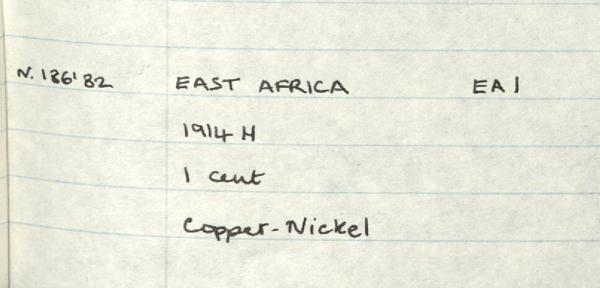 N. 186'82 EAST AFRICA EA1
1914 H
1 cent
Copper-Nickel